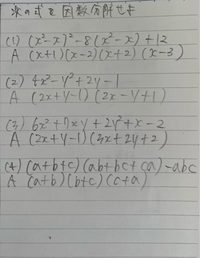 次の式を因数分解せよ
(1) (x²-x)²-8(x²-x)+12
A (x+1)(x-2)(x+2)(x-3)
(2) 4x²-y²+2y-1
A (2x+y-1)(2x-y+1)
(3) 6x²+7xy+2y²+x-2
A (2x+y-1)(3x+2y+2)
(4) (a+b+c)(ab+bc+ca)-abc
A (a+b)(b+c)(c+a)